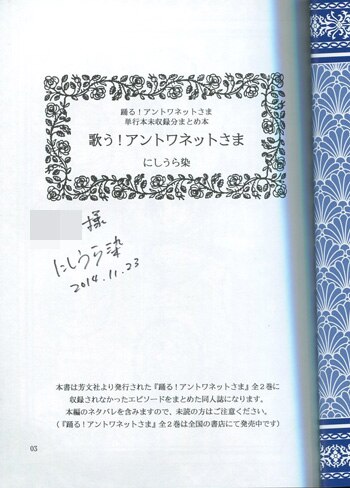 踊る！アントワネットさま
単行本未収録分まとめ本
歌う！アントワネットさま
にしうら染
様
にしうら染
2014.11.23
本書は芳文社より発行された『踊る！アントワネットさま』全２巻に
収録されなかったエピソードをまとめた同人誌になります。
本編のネタバレを含みますので、未読の方はご注意ください。
（『踊る！アントワネットさま』全２巻は全国の書店にて発売中です）
03